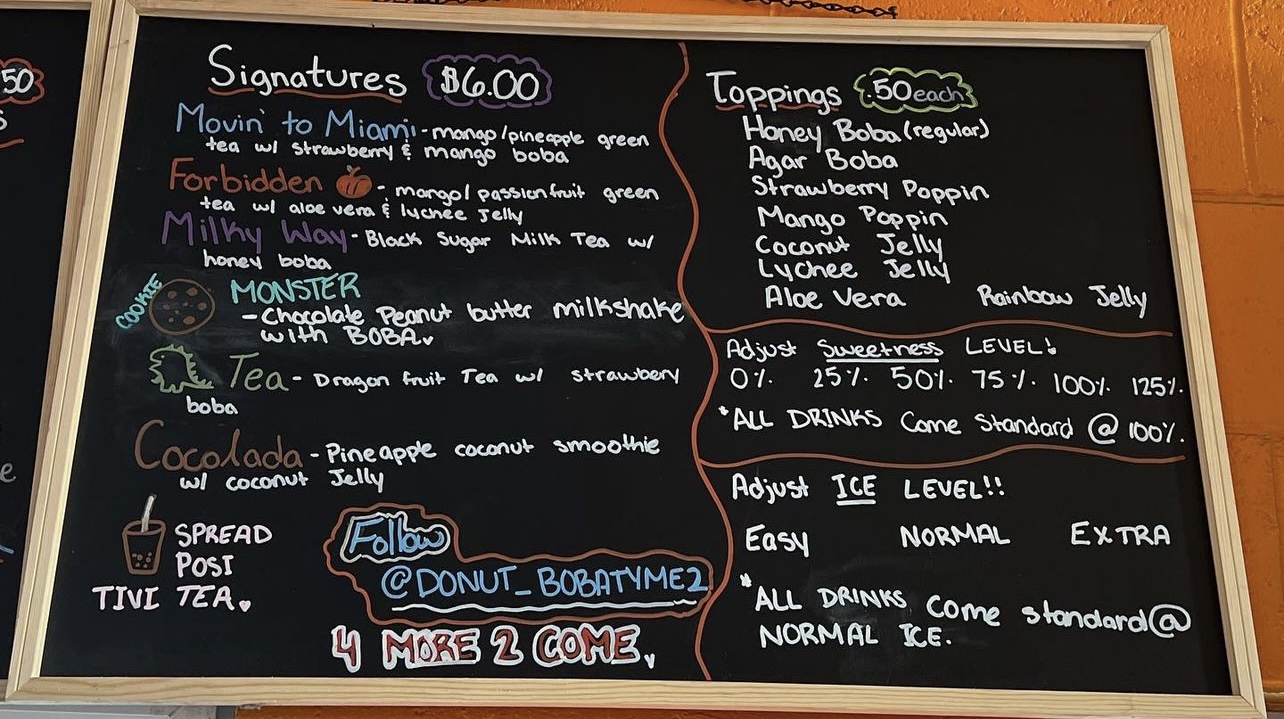 50
S
e
Signatures $6.00
Movin' to Miami - mango/pineapple green
tea w/ strawberry & mango boba
Forbidden - mango/passionfruit green
tea w/ aloe vera & lychee Jelly
Milky Way - Black Sugar Milk Tea w/
honey boba
COOKIE MONSTER
- Chocolate Peanut butter milkshake
with BOBA
Tea - Dragon fruit Tea w/ strawbery
boba
Cocolada - Pineapple coconut smoothie
w/ coconut Jelly
SPREAD
POSI
TIVI TEA
Follow
@DONUT_BOBATYME2
4 MORE 2 COME
Toppings .50 each
Honey Boba (regular)
Agar Boba
Strawberry Poppin
Mango Poppin
Coconut Jelly
Lychee Jelly
Aloe Vera Rainbow Jelly
Adjust Sweetness LEVEL!
0% 25% 50% 75% 100% 125%
*ALL DRINKS Come Standard @ 100%.
Adjust ICE LEVEL!!
Easy NORMAL EXTRA
*ALL DRINKS Come standard @
NORMAL ICE.